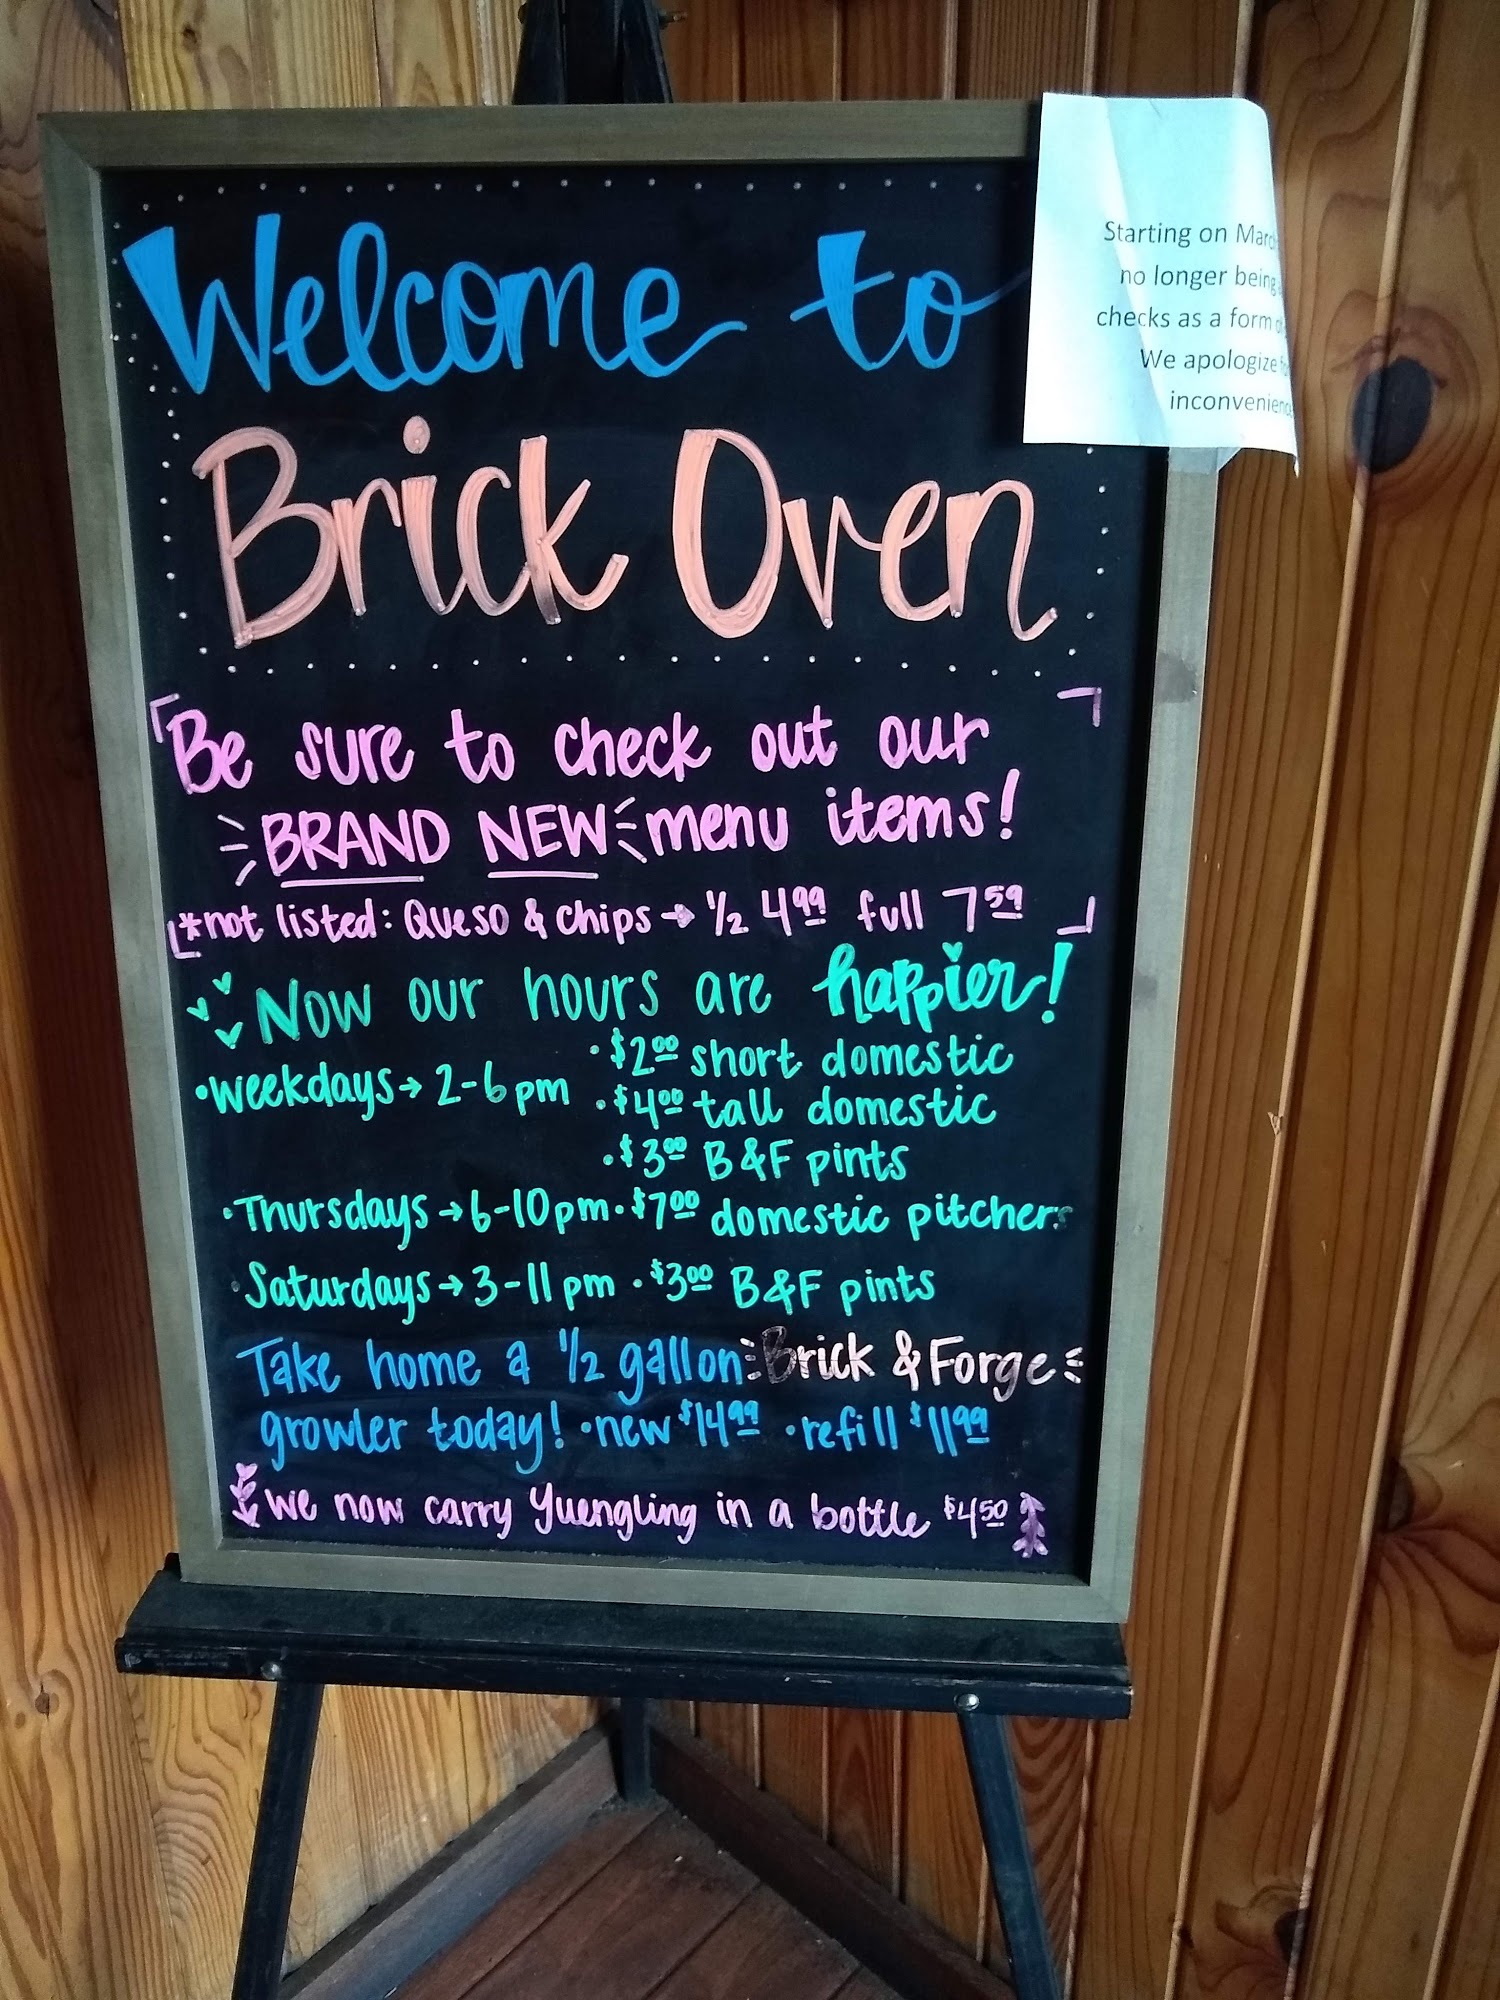 Welcome to
Brick Oven
Starting on
no longer being
checks as a form
We apologize
Be sure to check out our
BRAND NEW menu items!
*not listed: Queso & Chips → 1/2 4.99 full 7.59
Now our hours are happier!
•Weekdays → 2-6pm
•$2.00 short domestic
•$4.00 tall domestic
•$3.00 B&F pints
•Thursdays → 6-10pm •$7.00 domestic pitchers
•Saturdays → 3-11pm •$3.00 B&F pints
Take home a 1/2 gallon Brick & Forge
growler today! •new $14.99 •refill $11.99
we now carry Yuengling in a bottle $4.50